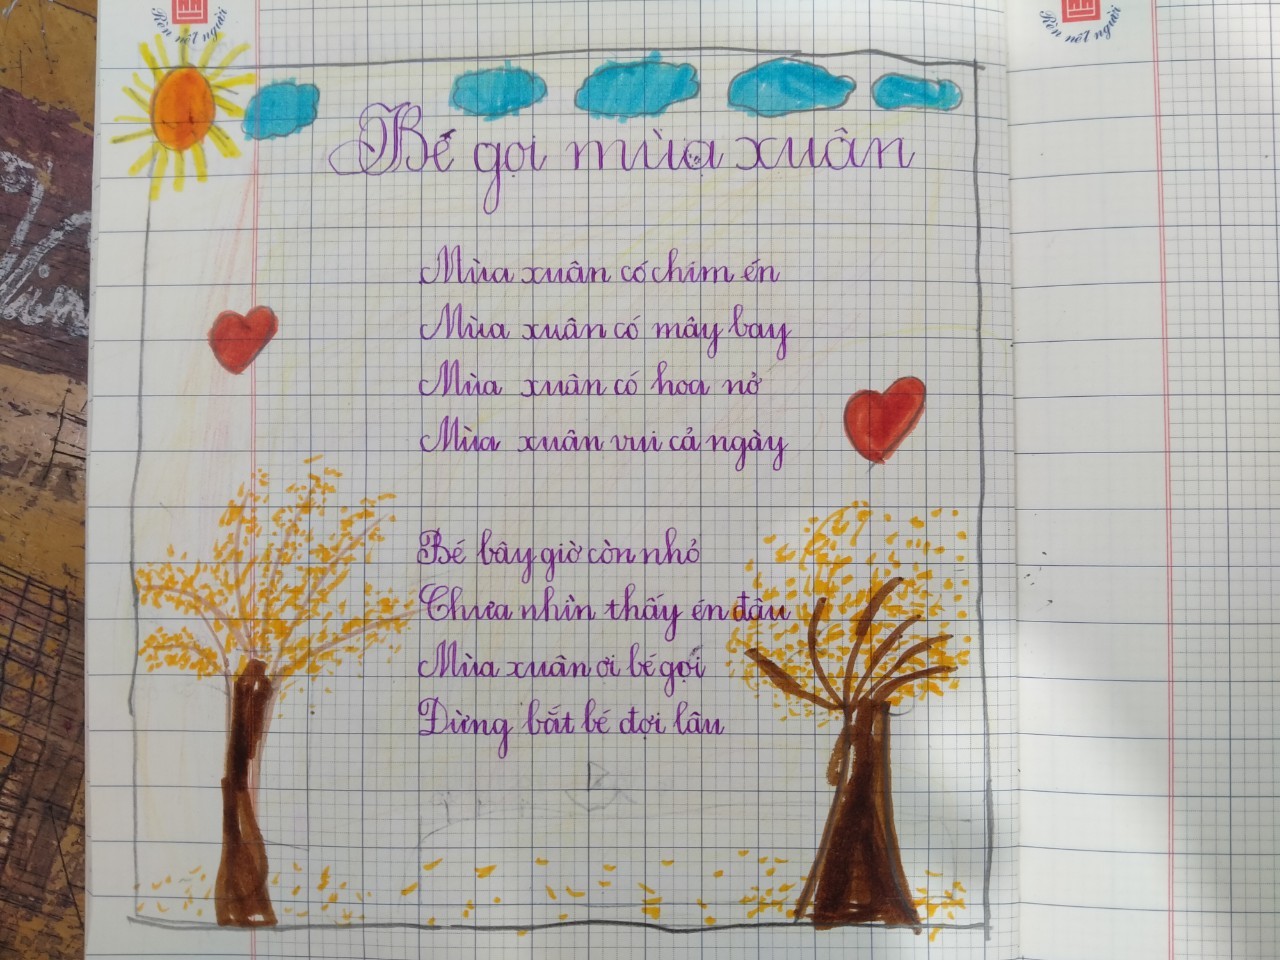 Rèn nết người
Rèn nết người
Bé gọi mùa xuân
Mùa xuân có chim én
Mùa xuân có mây bay
Mùa xuân có hoa nở
Mùa xuân vui cả ngày
Bé bây giờ còn nhỏ
Chưa nhìn thấy én đâu
Mùa xuân ơi bé gọi
Đừng bắt bé đợi lâu